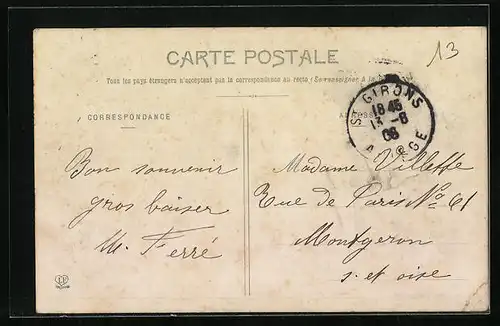 CARTE POSTALE
13
Tous les pays étrangers n'acceptent pas la correspondance au recto (Se renseigner à la
CORRESPONDANCE
St GIRONS
18 45
13 -8
08
ARIEGE
Bon souvenir
gros baiser
M. Ferré
Madame Villeffe
Rue de Paris No 61
Montgeron
s. et oise